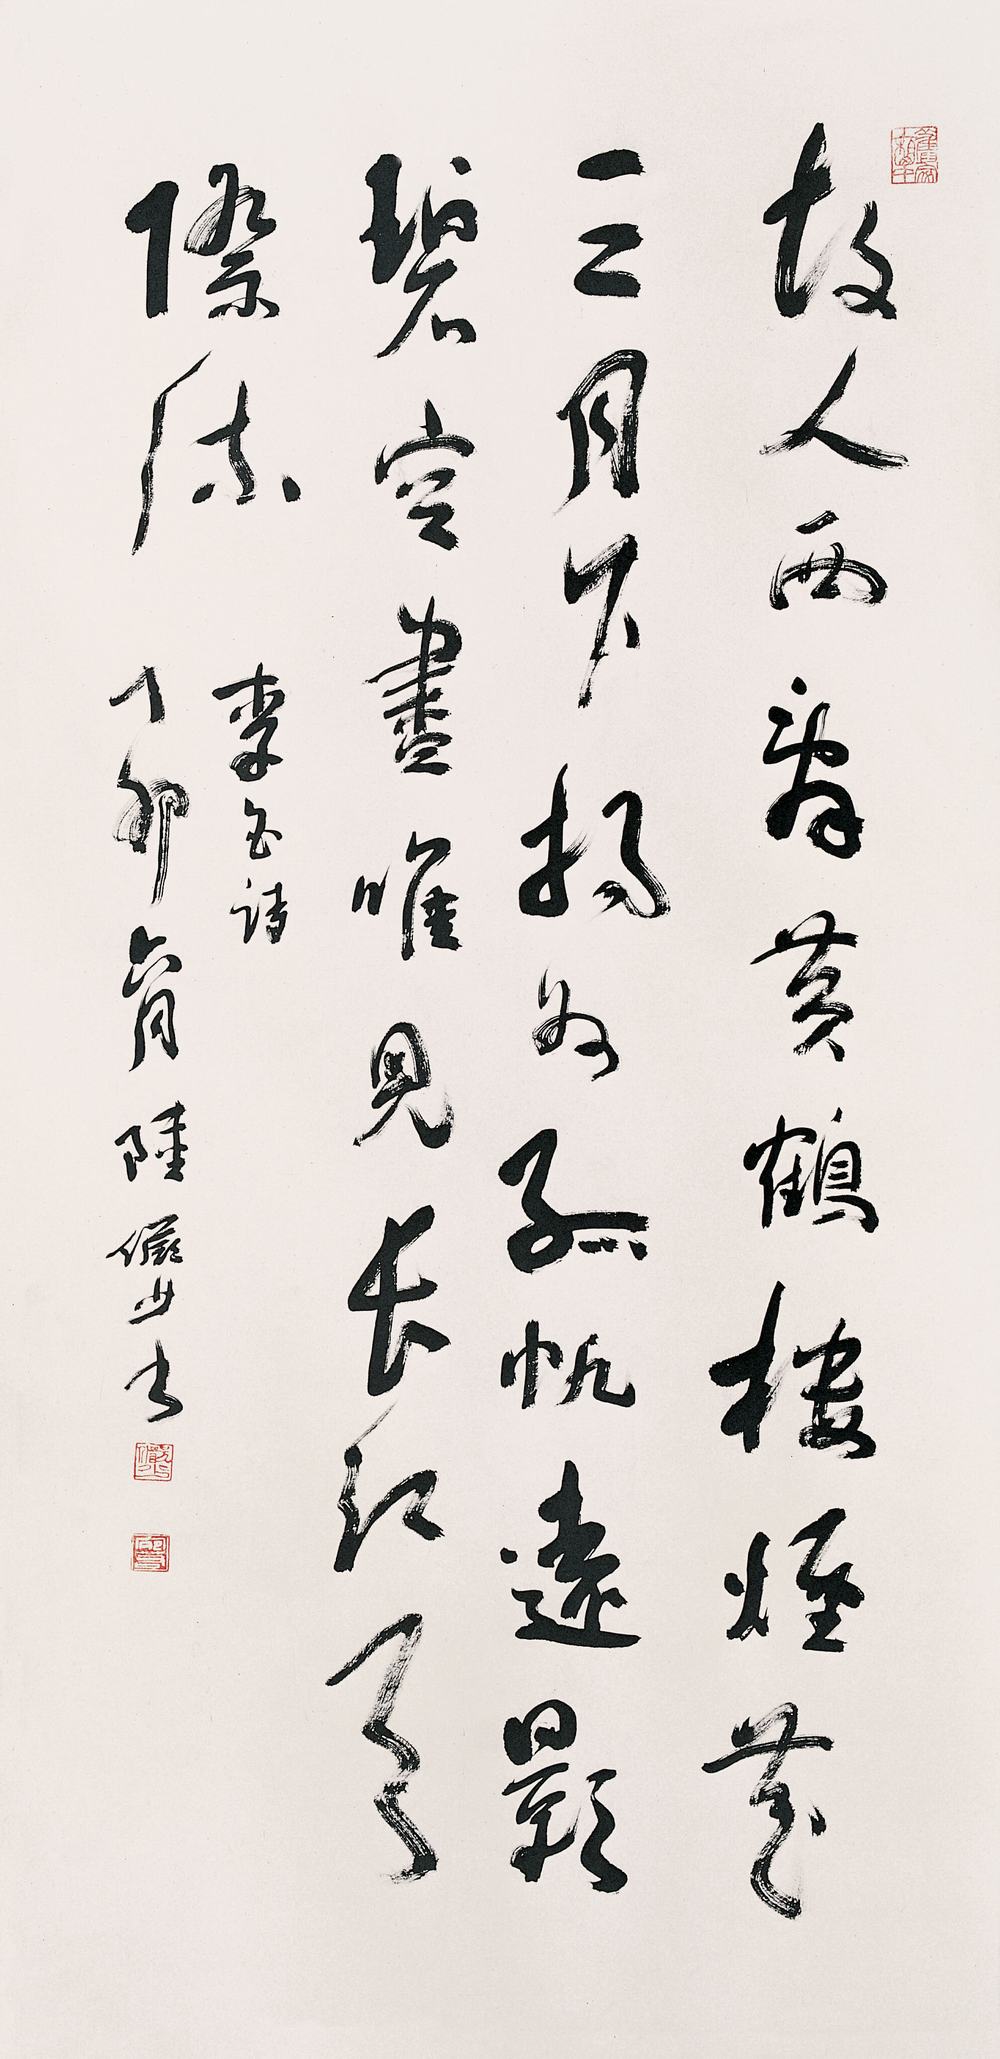 故人西辭黄鶴樓煙花
三月下揚州孤帆遠影
碧空盡唯見長江天
際流
李白詩
丁卯六月陸儼少書